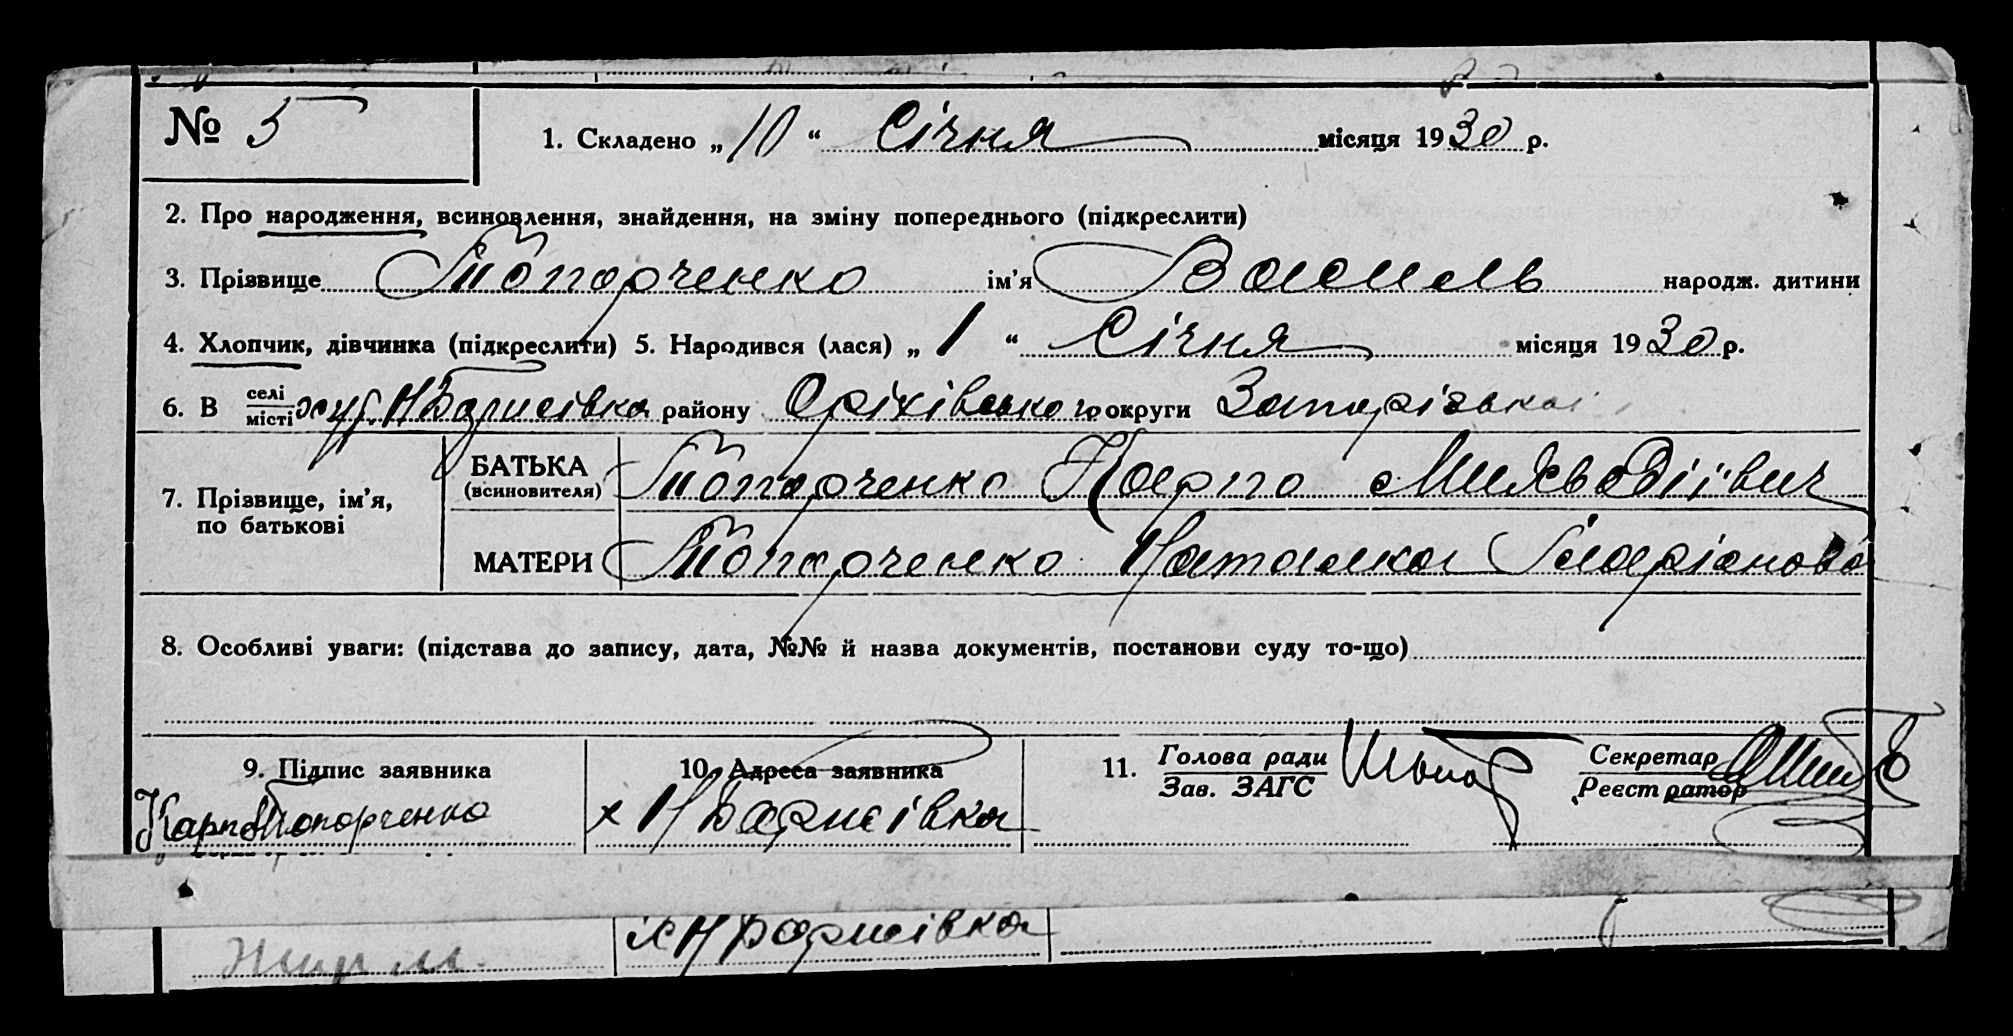 № 5
1. Складено „10“ Січня місяця 1930 р.
2. Про народження, всиновлення, знайдення, на зміну попереднього (підкреслити)
3. Прізвище Топорченко ім’я Василь народж. дитини
4. Хлопчик, дівчинка (підкреслити) 5. Народився (лася) „1“ Січня місяця 1930 р.
6. В селі місті хут. Н Борисівка району Оріхівського округи Запорізької
7. Прізвище, ім’я, по батькові
БАТЬКА (всиновителя) Топорченко Карпо
МАТЕРИ Топорченко Наталка Іларіонова
8. Особливі уваги: (підстава до запису, дата, №№ й назва документів, постанови суду то-що)
9. Підпис заявника
Карпо Топорченко
10. Адреса заявника
х Н Борисівка
11. Голова ради
Зав. ЗАГС
Секретар
Реєстратор
х Н Борисівка